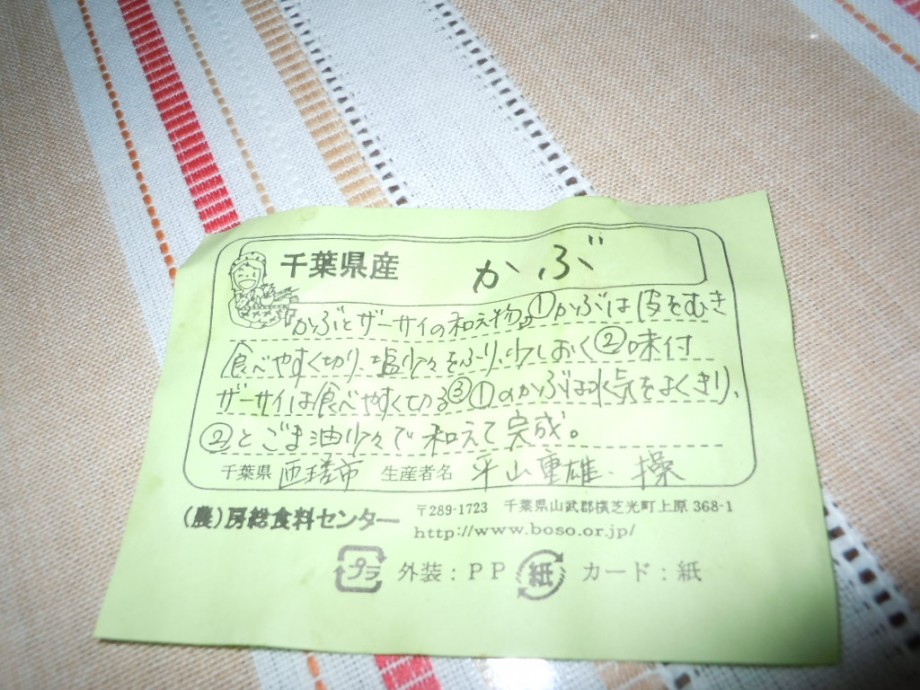 千葉県産 かぶ
かぶとザーサイの和え物①かぶは皮をむき
食べやすく切り、塩少々をふり、少しおく②味付
ザーサイは食べやすく切る③①のかぶは水気をよくきり、
②とごま油少々で和えて完成。
千葉県 匝瑳市 生産者名 平山重雄・操
(農)房総食料センター 〒289-1723 千葉県山武郡横芝光町上原368-1
http://www.boso.or.jp/
プラ 外装：PP 紙 カード：紙